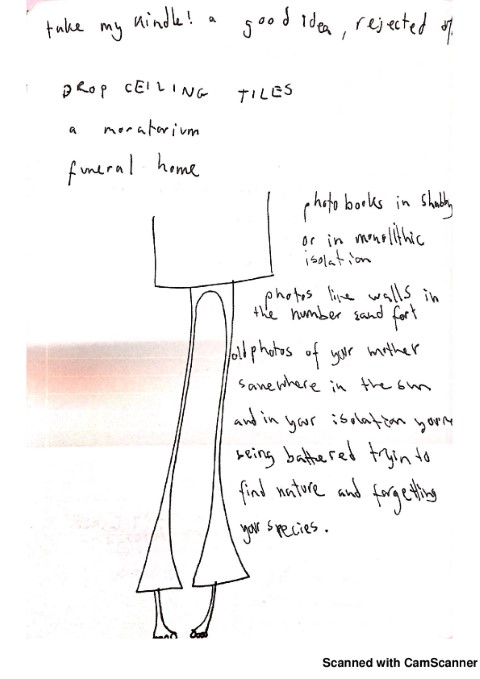 take my kindle! a good idea, rejected
DROP CEILING TILES
a moratorium
funeral home
photo books in shabby
or in monolithic
isolation
photos line walls in
the number sand fort
old photos of your mother
somewhere in the sun
and in your isolation your
being battered tryin to
find nature and forgetting
your species.
Scanned with CamScanner